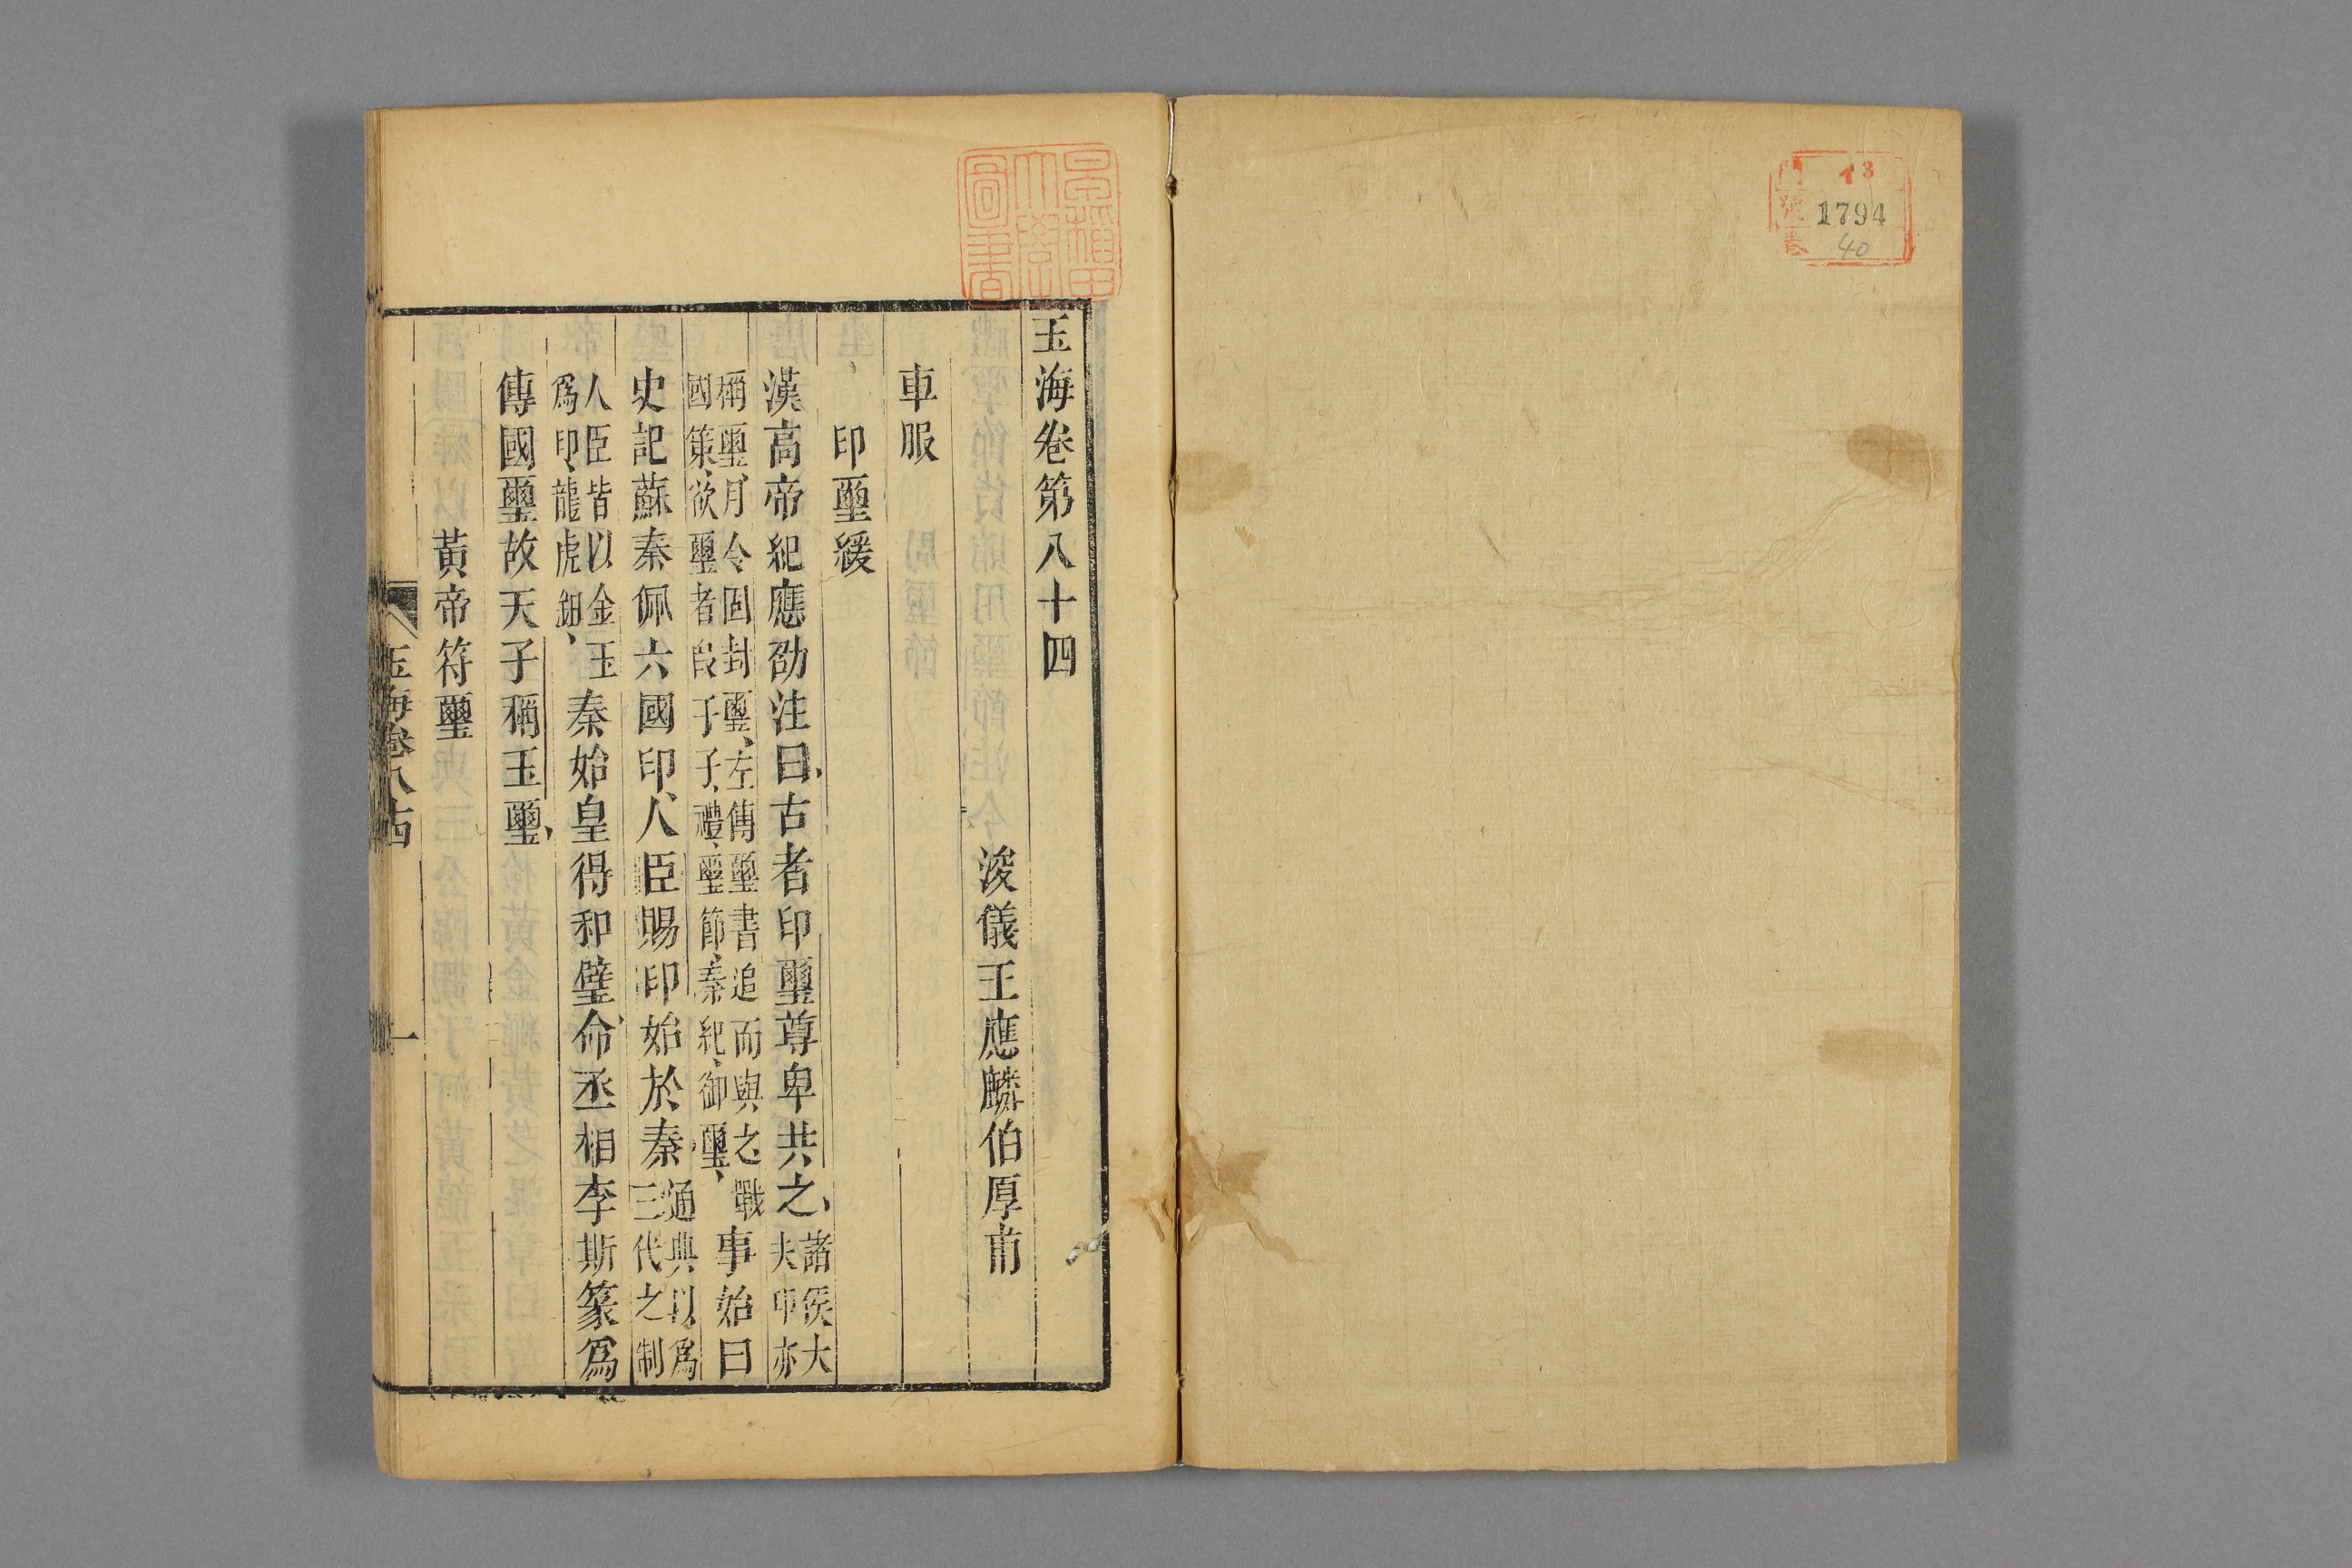 門 イ13
號 1794
卷 40
早稲田大學圖書
玉海卷第八十四
浚儀王應麟伯厚甫
車服
印璽綬
漢高帝紀應劭注曰、古者印璽尊卑共之、諸侯大夫印亦
稱璽、月令固封璽、左傳璽書追而與之戰國策、欲璽者段子子、禮、璽節、秦紀、御璽、事始曰
史記蘇秦佩六國印、人臣賜印始於秦、通典以爲三代之制
人臣皆以金玉爲印、龍虎鈕、秦始皇得和璧、命丞相李斯篆爲
傳國璽故天子稱玉璽、
黃帝符璽
玉海卷八十四 一